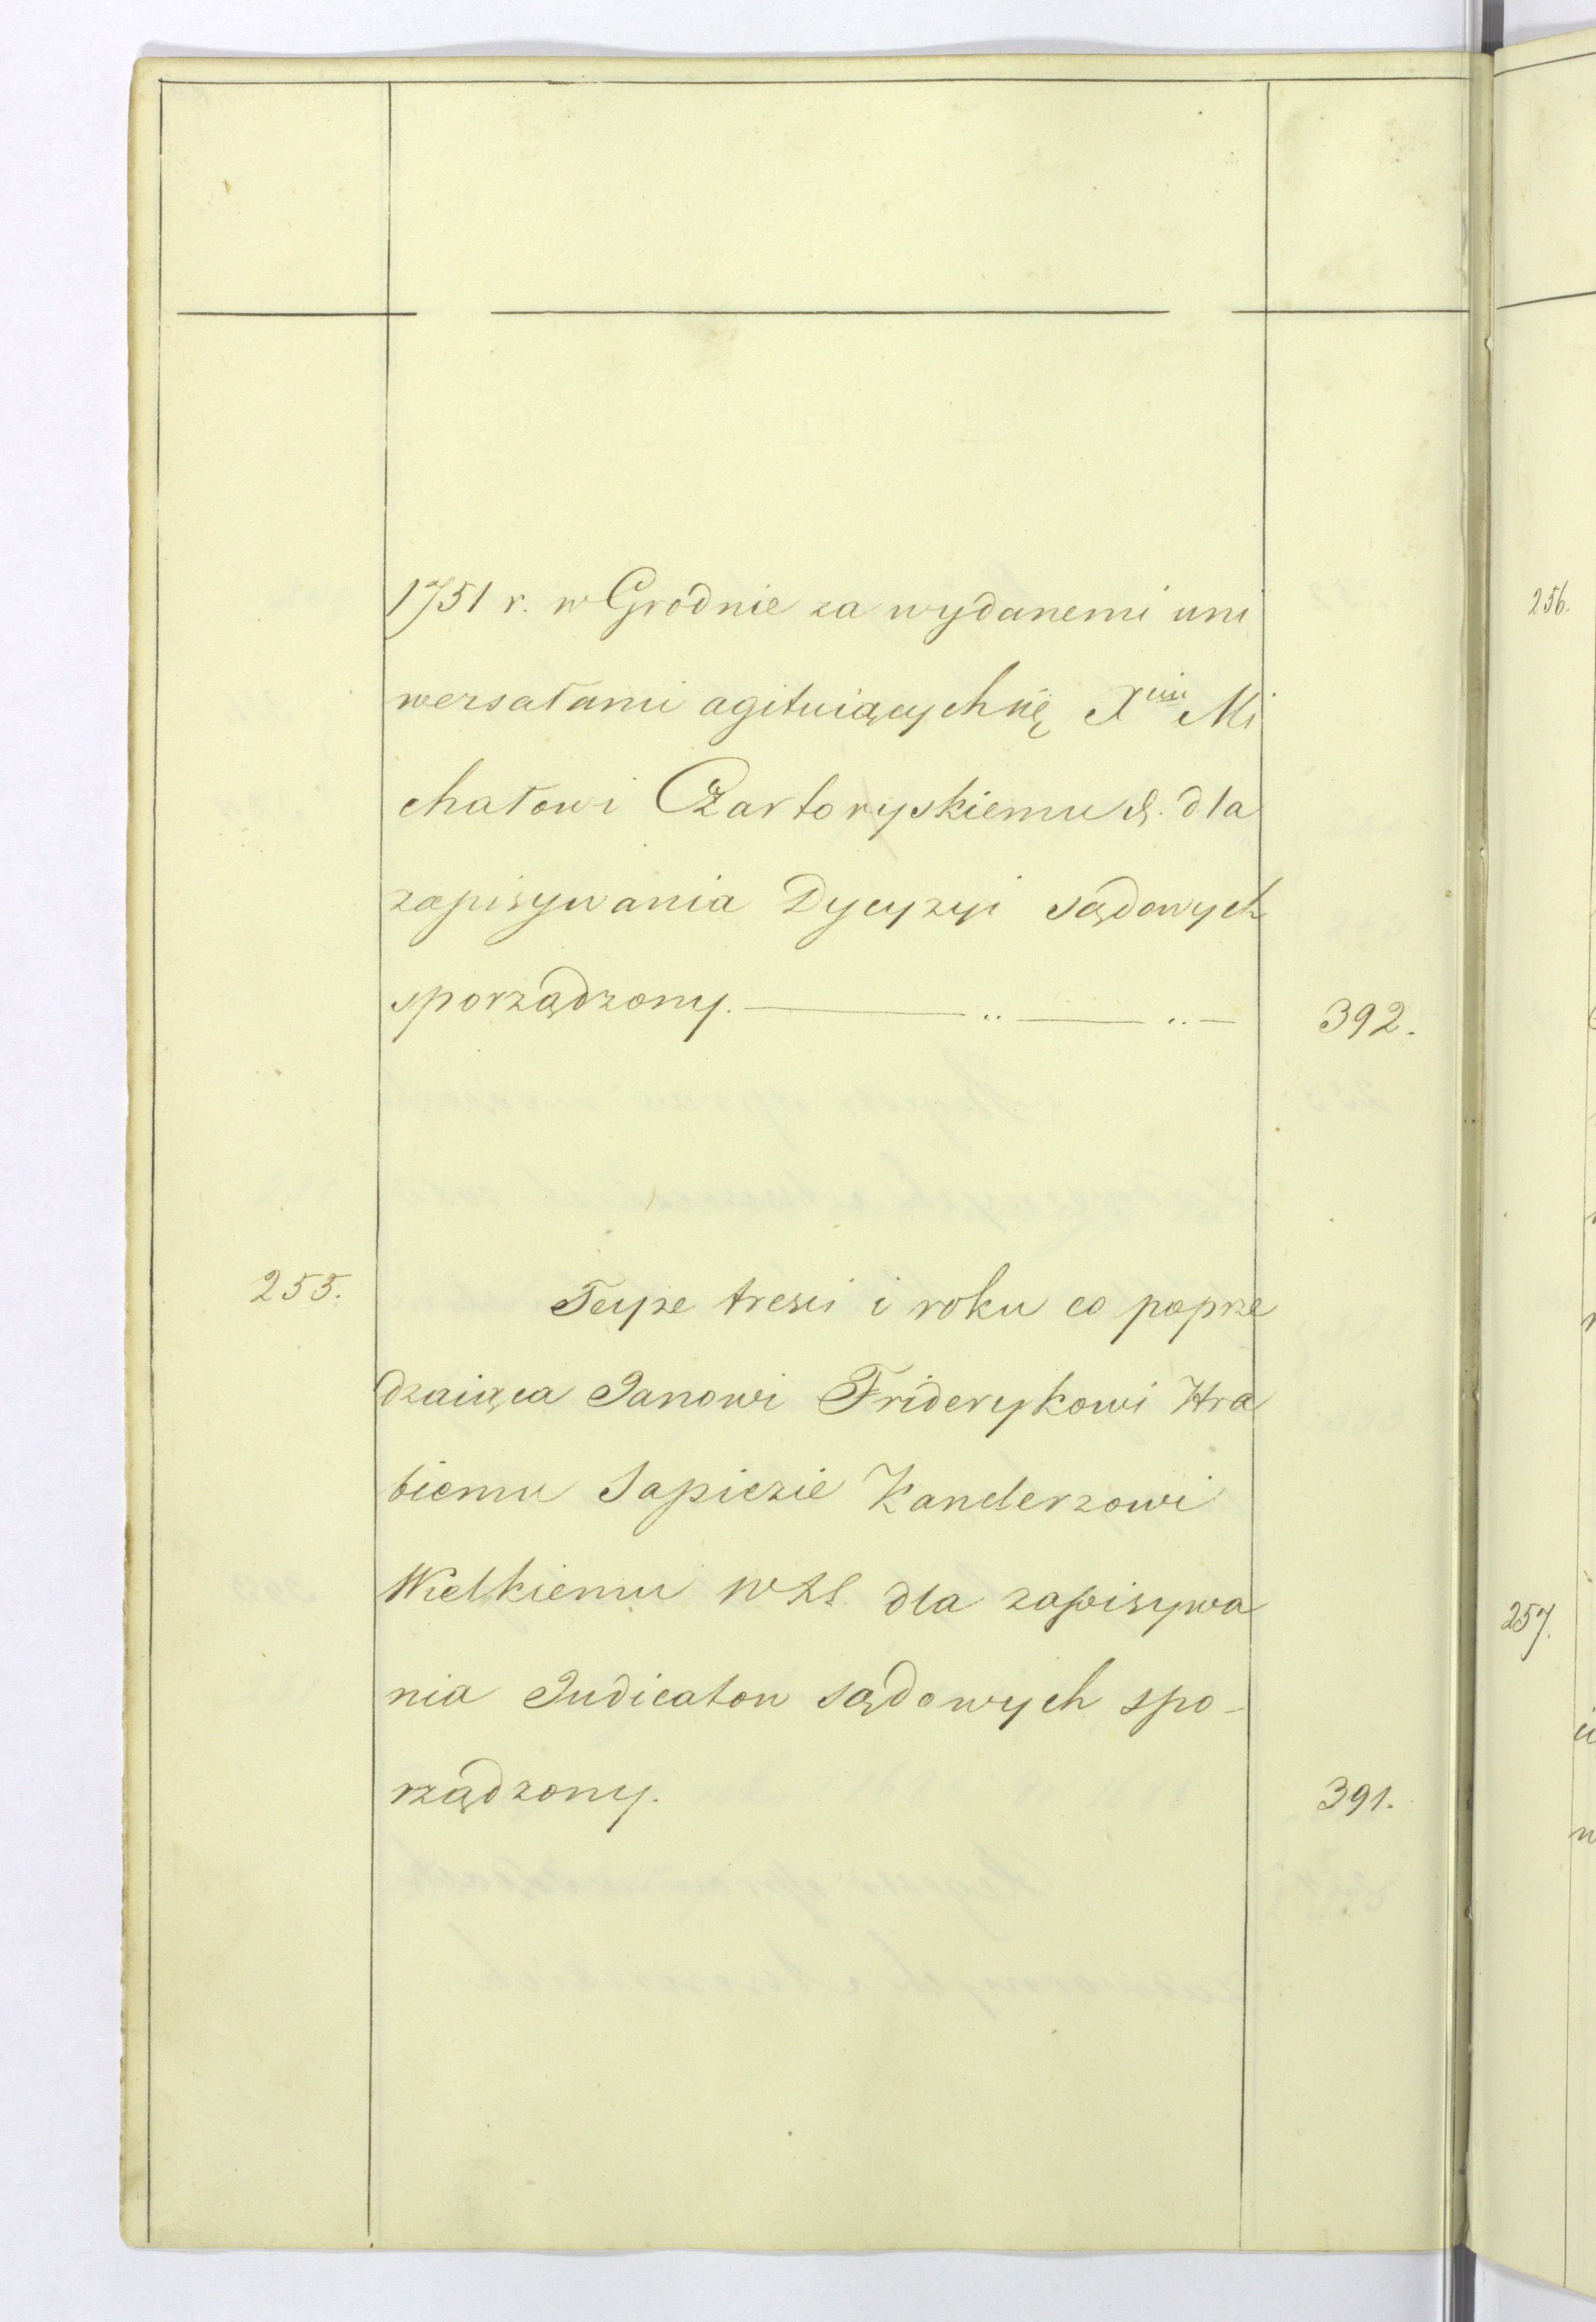 1751 r. w Grodnie za wydanemi uni
wersałami agituiących się Xciu Mi
chałowi Czartoryskiemu dla
zapisywania Dycyzyi sądowych
sporządzony. 392.
255. Teyże treści i roku co poprze
dzaiąca Janowi Friderykowi Hra
biemu Sapiezie Kanclerzowi
Wielkiemu dla zapisywa
nia Judicatow sądowych spo-
rządzony. 391.
256.
257.